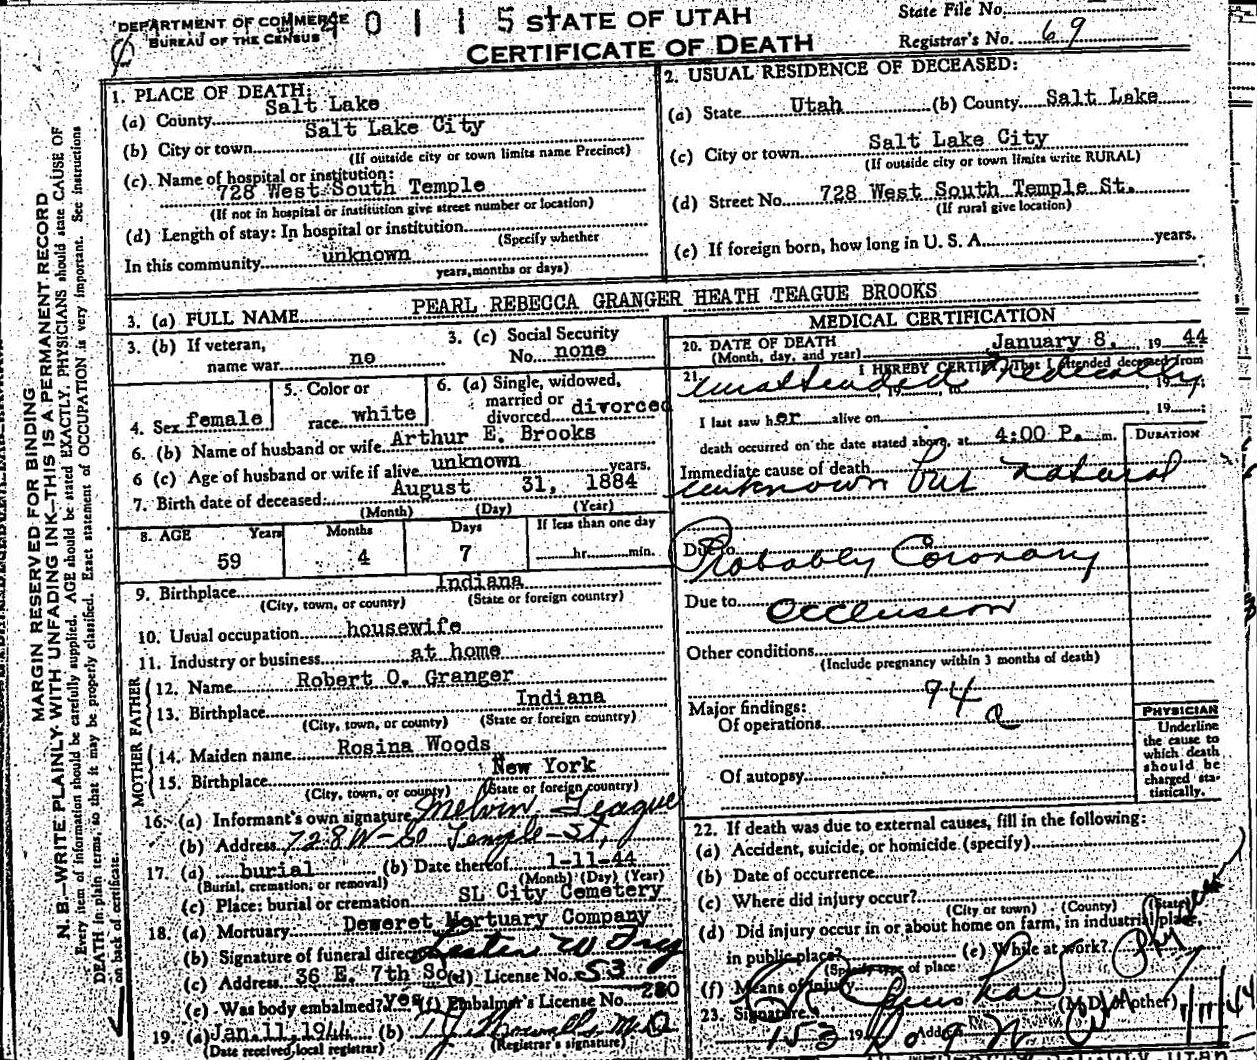 DEPARTMENT OF COMMERCE
BUREAU OF THE CENSUS
0 1 1 5
STATE OF UTAH
CERTIFICATE OF DEATH
State File No.
Registrar's No. 69
MARGIN RESERVED FOR BINDING
N. B.—WRITE PLAINLY WITH UNFADING INK—THIS IS A PERMANENT RECORD
Every item of information should be carefully supplied. AGE should be stated EXACTLY. PHYSICIANS should state CAUSE OF
DEATH in plain terms, so that it may be properly classified. Exact statement of OCCUPATION is very important. See instructions
on back of certificate.
1. PLACE OF DEATH:
(a) County Salt Lake
(b) City or town Salt Lake City
(If outside city or town limits name Precinct)
(c) Name of hospital or institution:
728 West South Temple
(If not in hospital or institution give street number or location)
(d) Length of stay: In hospital or institution
(Specify whether
In this community unknown
years, months or days)
2. USUAL RESIDENCE OF DECEASED:
(a) State Utah (b) County Salt Lake
(c) City or town Salt Lake City
(If outside city or town limits write RURAL)
(d) Street No. 728 West South Temple St.
(If rural give location)
(e) If foreign born, how long in U. S. A. years.
3. (a) FULL NAME PEARL REBECCA GRANGER HEATH TEAGUE BROOKS
3. (b) If veteran,
name war no
3. (c) Social Security
No. none
4. Sex female
5. Color or
race white
6. (a) Single, widowed,
married or
divorced divorced
6. (b) Name of husband or wife Arthur E. Brooks
6 (c) Age of husband or wife if alive unknown years.
7. Birth date of deceased: August 31, 1884
(Month) (Day) (Year)
8. AGE Years Months Days If less than one day
59 4 7 hr. min.
9. Birthplace Indiana
(City, town, or county) (State or foreign country)
10. Usual occupation housewife
11. Industry or business at home
FATHER
12. Name Robert O. Granger
13. Birthplace Indiana
(City, town, or county) (State or foreign country)
MOTHER
14. Maiden name Rosina Woods
15. Birthplace New York
(City, town, or county) (State or foreign country)
16. (a) Informant's own signature Melvin Teague
(b) Address 728 W-So Temple-St,
17. (a) burial (b) Date thereof 1-11-44
(Burial, cremation, or removal) (Month) (Day) (Year)
(c) Place: burial or cremation SL City Cemetery
18. (a) Mortuary Deweret Mortuary Company
(b) Signature of funeral director Lester W Frey
(c) Address 36 E. 7th So. (d) License No. 53
(e) Was body embalmed? yes (f) Embalmer's License No. 280
19. (a) Jan 11, 1944 (b) M.D.
(Date received local registrar) (Registrar's signature)
MEDICAL CERTIFICATION
20. DATE OF DEATH
(Month, day, and year) January 8, 1944
21. I HEREBY CERTIFY, That I attended deceased from
unattended medically
19 to 19
I last saw her alive on 19
death occurred on the date stated above, at 4:00 P. m.
DURATION
Immediate cause of death
unknown but natural
Due to
Probably Coronary
Due to Occlusion
Other conditions
(Include pregnancy within 3 months of death)
94a
Major findings:
Of operations
Of autopsy
PHYSICIAN
Underline
the cause to
which death
should be
charged sta-
tistically.
22. If death was due to external causes, fill in the following:
(a) Accident, suicide, or homicide (specify)
(b) Date of occurrence
(c) Where did injury occur?
(City or town) (County) (State)
(d) Did injury occur in or about home on farm, in industrial place,
in public place? (e) While at work?
(Specify type of place
(f) Means of injury
23. Signature (M.D. or other)
Address